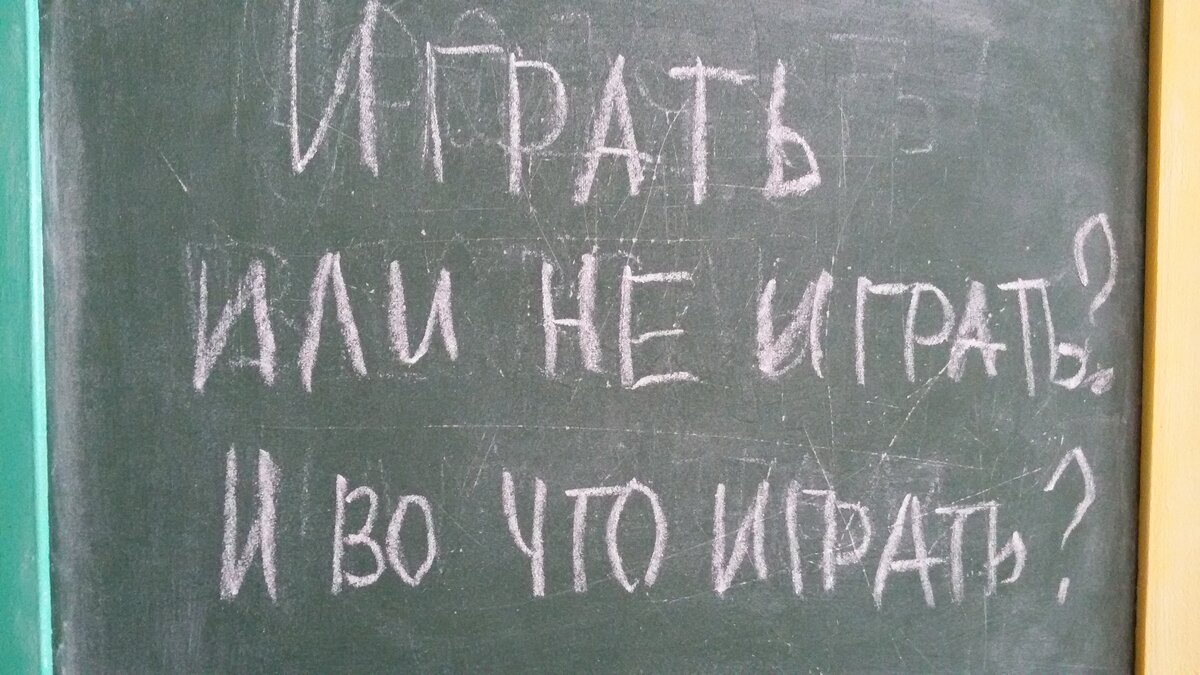 Играть
или не играть?
и во что играть?